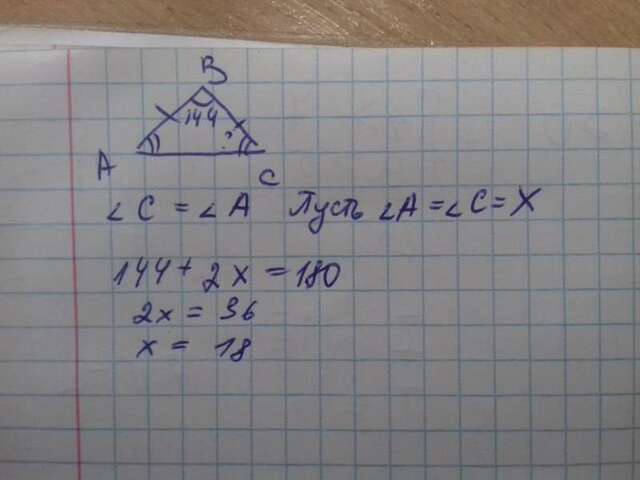 B
144
?
A
C
∠C = ∠A Пусть ∠A = ∠C = X
144 + 2X = 180
2x = 36
x = 18